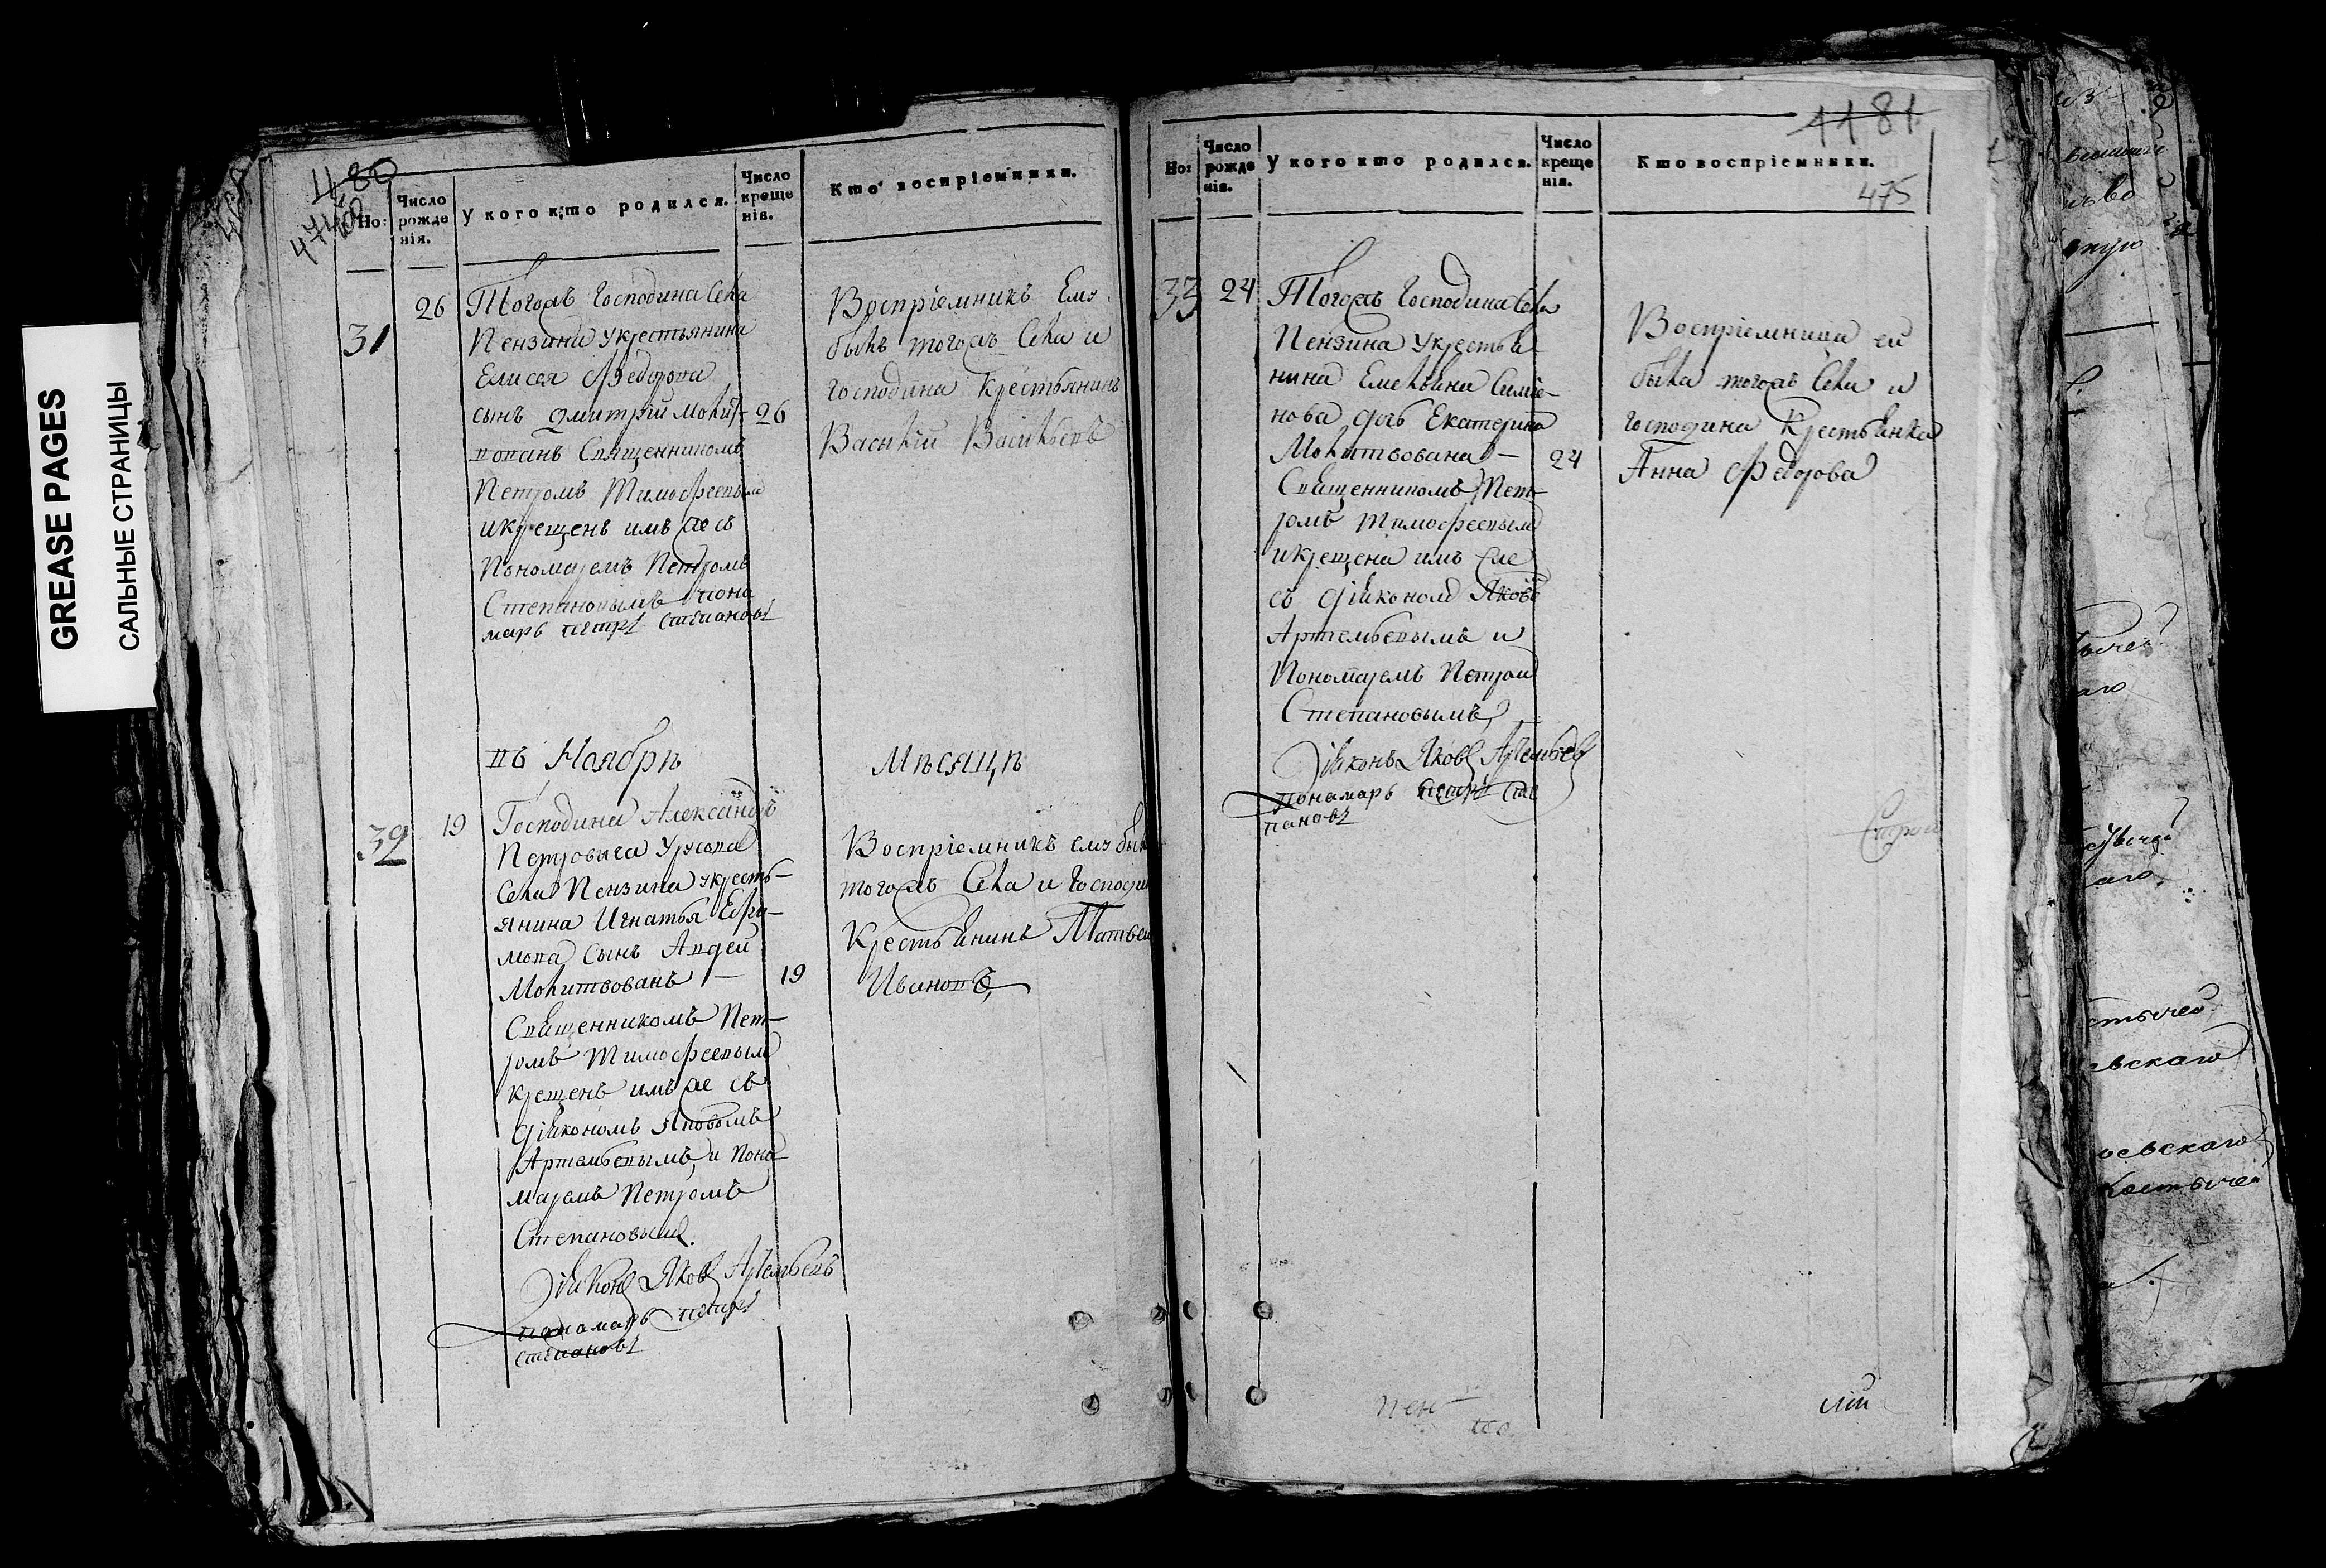 GREASE PAGES
САЛЬНЫЕ СТРАНИЦЫ
480
474
Но:
Число рожде нія.
У кого кто родился.
Число креще нія.
Кто воспріемники.
31
26
Тогожъ Господина Села
Пензина укрестьянина
Елисея Федорова
сынъ Дмитрій молит-
вованъ Священникомъ
Петромъ Тимофеевым
икрещенъ имъ же съ
Пономаремъ Петромъ
Степановымъ пона
марь петръ степановъ
26
Воспріемникъ Ему
былъ тогожъ Села и
господина Крестьянинъ
Василій Васильевъ
въ Ноябрѣ
Мѣсяцѣ
32
19
Господина Александръ
Петровича Урсова
Села Пензина укресть-
янина Игнатья Ефи-
мова Сынъ Авдей
Молитвованъ —
Священникомъ Пет-
ромъ Тимофеевым
крещенъ имъ же съ
діякономъ Яковомъ
Артемьевымъ, и Поно-
маремъ Петромъ
Степановым.
Діякон Яковъ Артемьевъ
панамарь петръ
степановъ
19
Воспріемникъ ему был
тогожъ Села и господин
Крестьянинъ Матвей
Ивановъ,
1181
475
Но:
Число рожде нія.
У кого кто родился.
Число креще нія.
Кто воспріемники.
33
24
Тогожъ Господина Села
Пензина укрестья-
нина Емельяна Симіо-
нова дочь Екатерина
Молитвована —
Священникомъ Пет-
ромъ Тимофеевым
икрещена имъ же
съ діяконом Яков
Артемьевымъ и
Пономаремъ Петром
Степановымъ,
Діяконъ Яковъ Артемьев
понамарь петръ сте
пановъ
24
Воспріемница ей
была тогожъ Села и
господина Крестьянка
Анна Федорова
пен-
лій